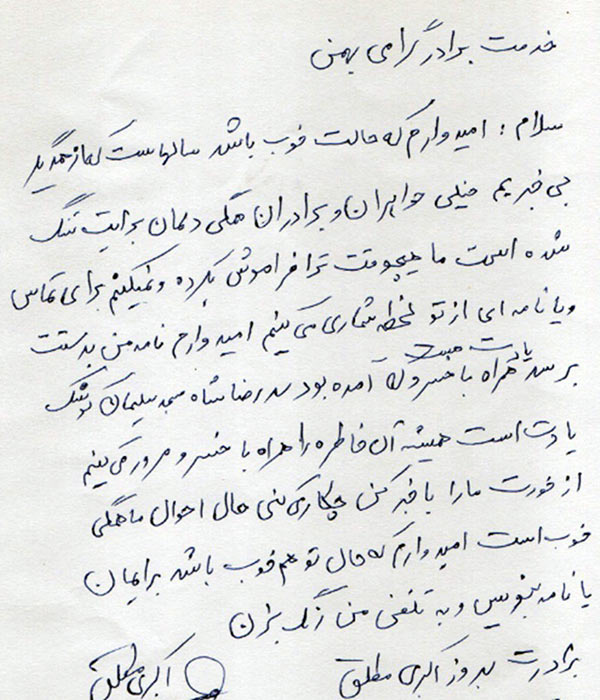 خدمت برادر گرامی بهمن
سلام : امیدوارم که حالت خوب باشد سالهاست که از همدیگر
بی خبریم خیلی خواهران و برادران همگی دلمان برایت تنگ
شده است ما هیچوقت ترا فراموش نکرده و نمیکنیم برای تماس
و یا نامه ای از تو لحظه شماری می کنیم امیدوارم نامه من بدستت
برسد یادت هست همراه با خسرو که آمده بود سد رضا شاه مسجد سلیمان
یادت است همیشه آن خاطره را همراه با خسرو مرور می کنیم
از خودت ما را با خبر کن چکار می کنی حال احوال ما همگی
خوب است امیدوارم که حال تو هم خوب باشد برایمان
یا نامه بنویس و به تلفن من زنگ بزن
برادرت بهروز اکبری مطلق اکبری مطلق